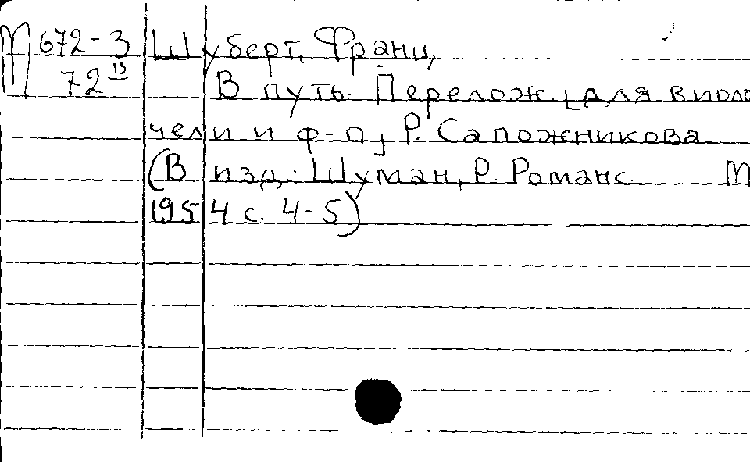 М 672-3 Шуберт, Франц,
72 13 В путь Перелож. [для виоло
чели и ф-п.] Р. Сапожникова
(В изд.: Шуман, Р. Романс М
1954 с. 4-5)